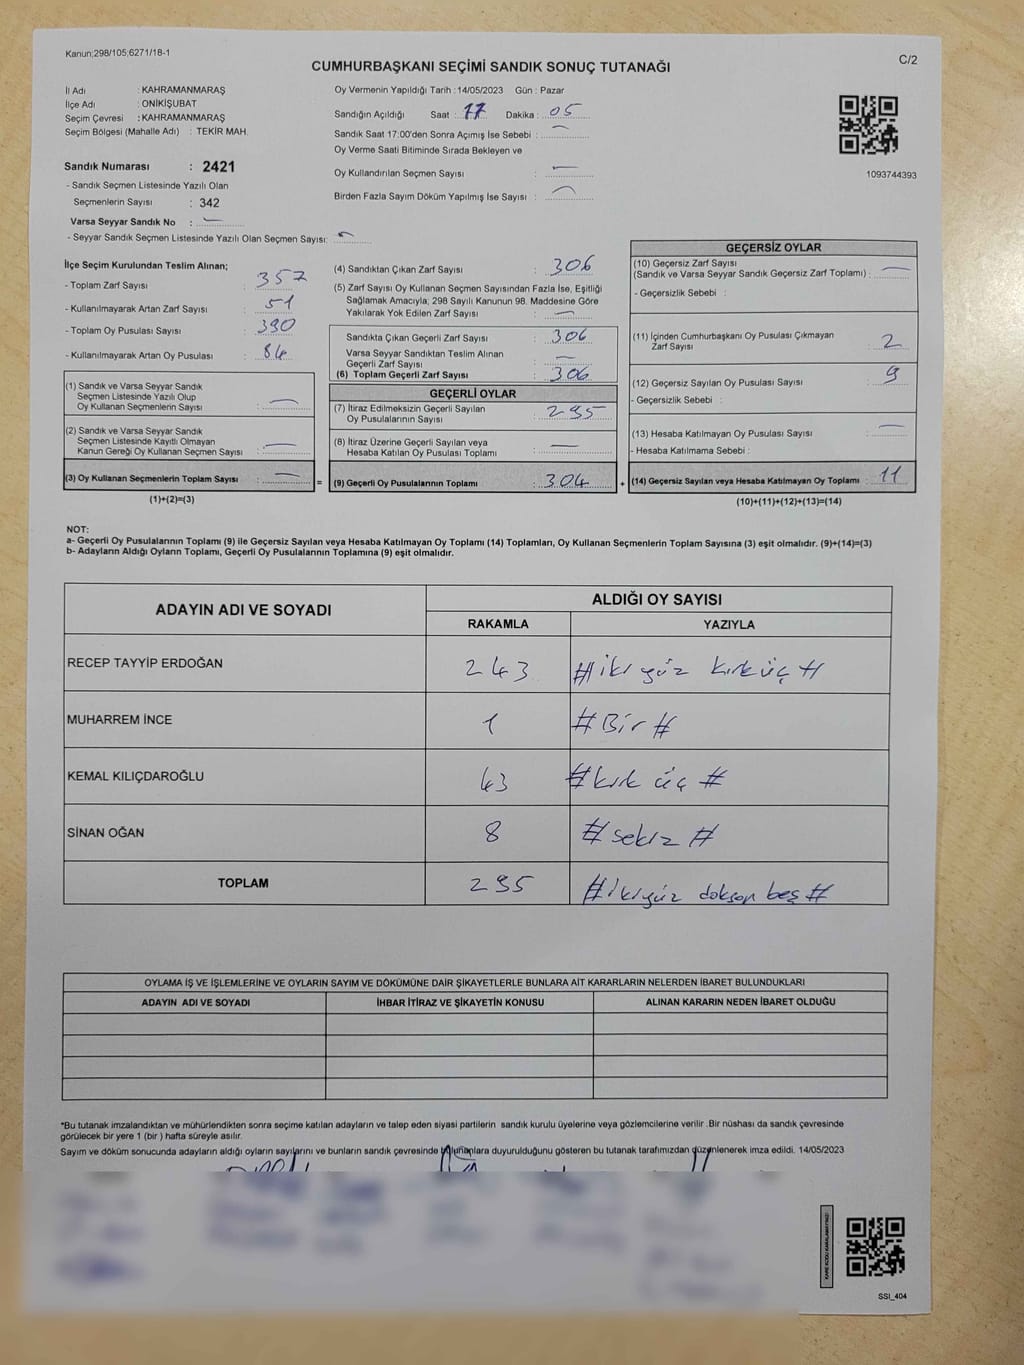 Kanun;298/105;6271/18-1
C/2
CUMHURBAŞKANI SEÇİMİ SANDIK SONUÇ TUTANAĞI
İl Adı : KAHRAMANMARAŞ
İlçe Adı : ONİKİŞUBAT
Seçim Çevresi : KAHRAMANMARAŞ
Seçim Bölgesi (Mahalle Adı) : TEKİR MAH.
Sandık Numarası : 2421
- Sandık Seçmen Listesinde Yazılı Olan
Seçmenlerin Sayısı : 342
Varsa Seyyar Sandık No : —
- Seyyar Sandık Seçmen Listesinde Yazılı Olan Seçmen Sayısı: —
Oy Vermenin Yapıldığı Tarih :14/05/2023 Gün : Pazar
Sandığın Açıldığı Saat : 17 Dakika : 05
Sandık Saat 17:00'den Sonra Açımış İse Sebebi : —
Oy Verme Saati Bitiminde Sırada Bekleyen ve
Oy Kullandırılan Seçmen Sayısı : —
Birden Fazla Sayım Döküm Yapılmış İse Sayısı : —
1093744393
İlçe Seçim Kurulundan Teslim Alınan;
- Toplam Zarf Sayısı : 357
- Kullanılmayarak Artan Zarf Sayısı : 51
- Toplam Oy Pusulası Sayısı : 390
- Kullanılmayarak Artan Oy Pusulası : 84
(1) Sandık ve Varsa Seyyar Sandık
Seçmen Listesinde Yazılı Olup
Oy Kullanan Seçmenlerin Sayısı : —
(2) Sandık ve Varsa Seyyar Sandık
Seçmen Listesinde Kayıtlı Olmayan
Kanun Gereği Oy Kullanan Seçmen Sayısı : —
(3) Oy Kullanan Seçmenlerin Toplam Sayısı : —
(1)+(2)=(3)
(4) Sandıktan Çıkan Zarf Sayısı : 306
(5) Zarf Sayısı Oy Kullanan Seçmen Sayısından Fazla İse, Eşitliği
Sağlamak Amacıyla; 298 Sayılı Kanunun 98. Maddesine Göre
Yakılarak Yok Edilen Zarf Sayısı : —
Sandıkta Çıkan Geçerli Zarf Sayısı : 306
Varsa Seyyar Sandıktan Teslim Alınan
Geçerli Zarf Sayısı : —
(6) Toplam Geçerli Zarf Sayısı : 306
GEÇERLİ OYLAR
(7) İtiraz Edilmeksizin Geçerli Sayılan
Oy Pusulalarının Sayısı : 295
(8) İtiraz Üzerine Geçerli Sayılan veya
Hesaba Katılan Oy Pusulası Toplamı : —
= (9) Geçerli Oy Pusulalarının Toplamı : 304
GEÇERSİZ OYLAR
(10) Geçersiz Zarf Sayısı
(Sandık ve Varsa Seyyar Sandık Geçersiz Zarf Toplamı) : —
- Geçersizlik Sebebi :
(11) İçinden Cumhurbaşkanı Oy Pusulası Çıkmayan
Zarf Sayısı : 2
(12) Geçersiz Sayılan Oy Pusulası Sayısı : 9
- Geçersizlik Sebebi :
(13) Hesaba Katılmayan Oy Pusulası Sayısı : —
- Hesaba Katılmama Sebebi :
+ (14) Geçersiz Sayılan veya Hesaba Katılmayan Oy Toplamı : 11
(10)+(11)+(12)+(13)=(14)
NOT:
a- Geçerli Oy Pusulalarının Toplamı (9) ile Geçersiz Sayılan veya Hesaba Katılmayan Oy Toplamı (14) Toplamları, Oy Kullanan Seçmenlerin Toplam Sayısına (3) eşit olmalıdır. (9)+(14)=(3)
b- Adayların Aldığı Oyların Toplamı, Geçerli Oy Pusulalarının Toplamına (9) eşit olmalıdır.
ADAYIN ADI VE SOYADI
ALDIĞI OY SAYISI
RAKAMLA YAZIYLA
RECEP TAYYİP ERDOĞAN 243 #iki yüz kırk üç#
MUHARREM İNCE 1 #Bir#
KEMAL KILIÇDAROĞLU 43 #kırk üç#
SİNAN OĞAN 8 #sekiz#
TOPLAM 295 #ikiyüz doksan beş#
OYLAMA İŞ VE İŞLEMLERİNE VE OYLARIN SAYIM VE DÖKÜMÜNE DAİR ŞİKAYETLERLE BUNLARA AİT KARARLARIN NELERDEN İBARET BULUNDUKLARI
ADAYIN ADI VE SOYADI İHBAR İTİRAZ VE ŞİKAYETİN KONUSU ALINAN KARARIN NEDEN İBARET OLDUĞU
*Bu tutanak imzalandıktan ve mühürlendikten sonra seçime katılan adayların ve talep eden siyasi partilerin sandık kurulu üyelerine veya gözlemcilerine verilir .Bir nüshası da sandık çevresinde
görülecek bir yere 1 (bir ) hafta süreyle asılır.
Sayım ve döküm sonucunda adayların aldığı oyların sayılarını ve bunların sandık çevresinde bulunanlara duyurulduğunu gösteren bu tutanak tarafımızdan düzenlenerek imza edildi. 14/05/2023
KARE KODU KARALAMAYINIZ!
SSI_404